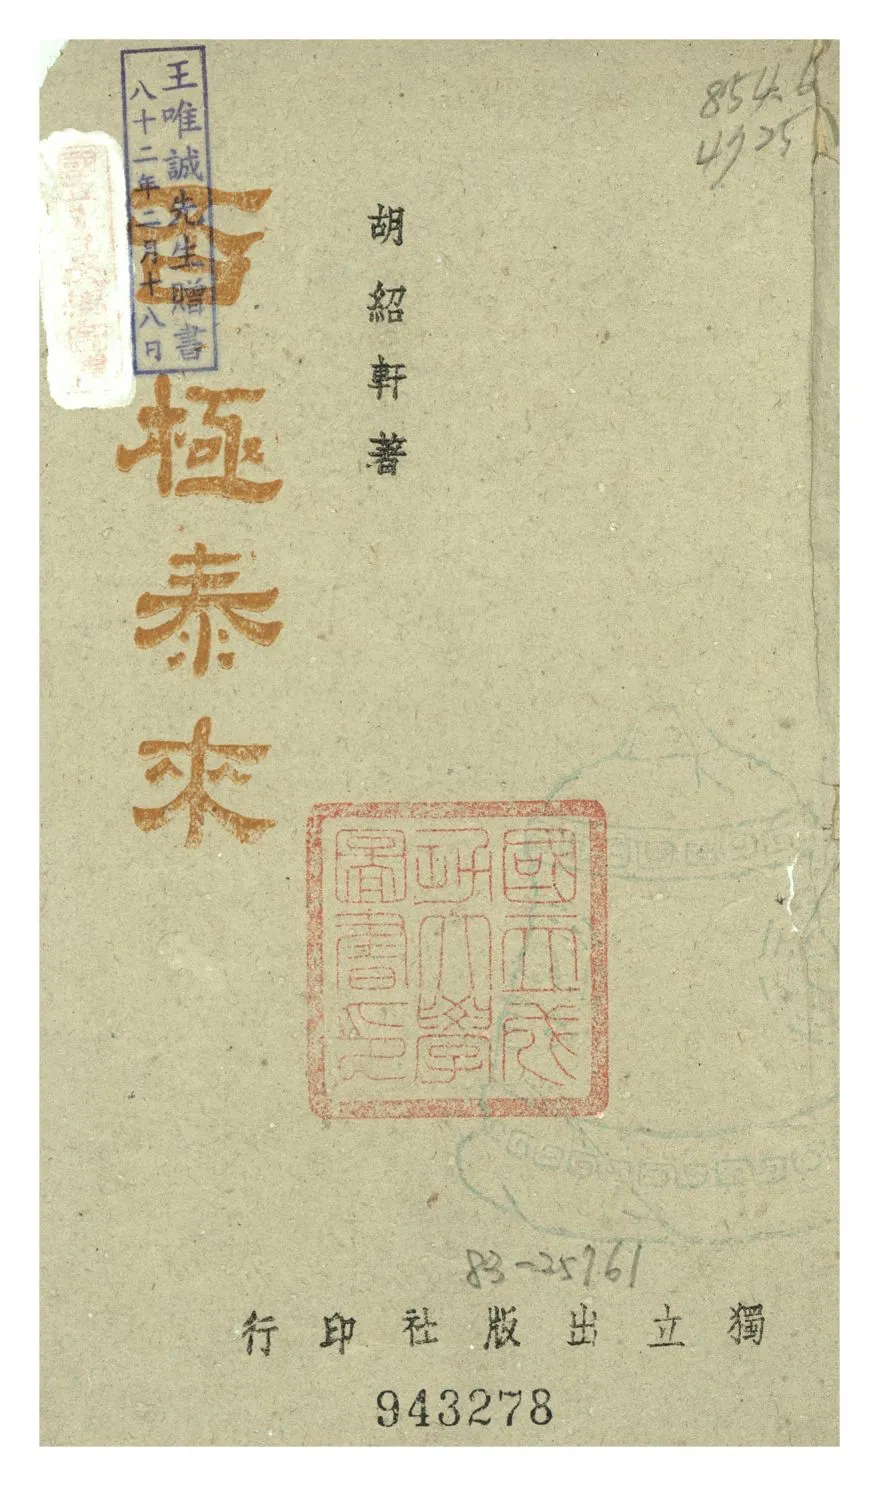 胡紹軒著
王唯誠先生贈書
八十二年二月十八日
否極泰來
國立成
功大學
圖書印
獨立出版社印行
943278